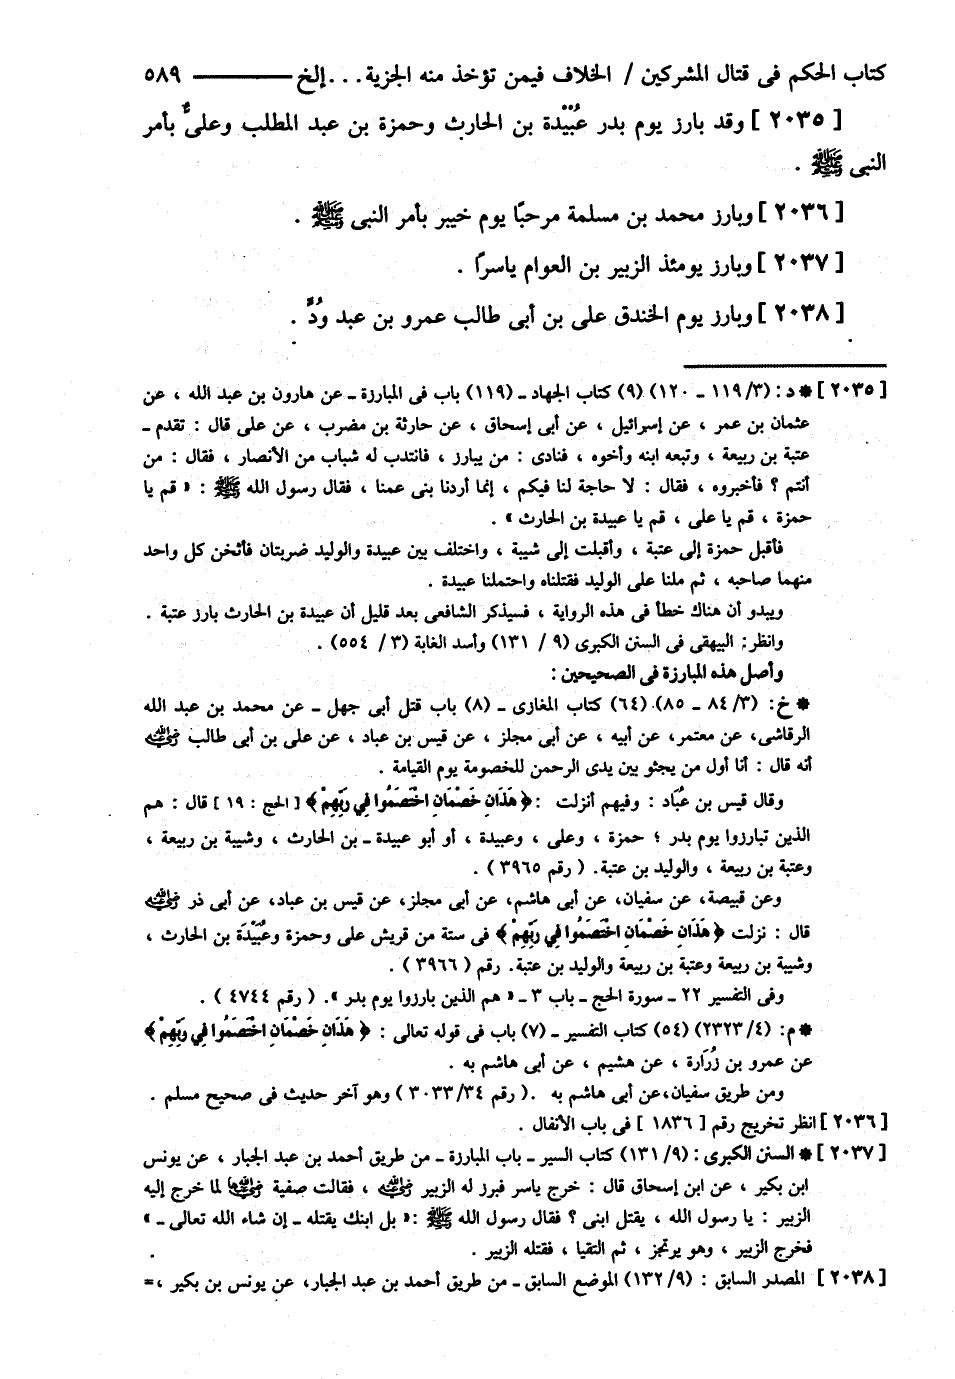 كتاب الحكم فى قتال المشركين / الخلاف فيمن تؤخذ منه الجزية . . . إلخ ــــــــــ ٥٨٩
[ ٢٠٣٥ ] وقد بارز يوم بدر عُبَيْدة بن الحارث وحمزة بن عبد المطلب وعلىٌّ بأمر
النبى ﷺ .
[ ٢٠٣٦ ] وبارز محمد بن مسلمة مرحبًا يوم خيبر بأمر النبى ﷺ .
[ ٢٠٣٧ ] وبارز يومئذ الزبير بن العوام ياسرًا .
[ ٢٠٣٨ ] وبارز يوم الخندق على بن أبى طالب عمرو بن عبد وُدٍّ .
[ ٢٠٣٥ ] * د : (٣/ ١١٩ ـ ١٢٠) (٩) كتاب الجهاد ـ (١١٩) باب فى المبارزة ـ عن هارون بن عبد الله ، عن
عثمان بن عمر ، عن إسرائيل ، عن أبى إسحاق ، عن حارثة بن مضرب ، عن على قال : تقدم ـ
عتبة بن ربيعة ، وتبعه ابنه وأخوه ، فنادى : من يبارز ، فانتدب له شباب من الأنصار ، فقال : من
أنتم ؟ فأخبروه ، فقال : لا حاجة لنا فيكم ، إنما أردنا بنى عمنا ، فقال رسول الله ﷺ : « قم يا
حمزة ، قم يا على ، قم يا عبيدة بن الحارث » .
فأقبل حمزة إلى عتبة ، وأقبلت إلى شيبة ، واختلف بين عبيدة والوليد ضربتان فأثخن كل واحد
منهما صاحبه ، ثم ملنا على الوليد فقتلناه واحتملنا عبيدة .
ويبدو أن هناك خطأ فى هذه الرواية ، فسيذكر الشافعى بعد قليل أن عبيدة بن الحارث بارز عتبة .
وانظر: البيهقى فى السنن الكبرى (٩ / ١٣١) وأسد الغابة (٣ / ٥٥٤) .
وأصل هذه المبارزة فى الصحيحين :
* خ: (٣/ ٨٤ ـ ٨٥) (٦٤) كتاب المغازى ـ (٨) باب قتل أبى جهل ـ عن محمد بن عبد الله
الرقاشى، عن معتمر، عن أبيه ، عن أبى مجلز ، عن قيس بن عباد ، عن على بن أبى طالب رضي الله عنه
أنه قال : أنا أول من يجثو بين يدى الرحمن للخصومة يوم القيامة .
وقال قيس بن عُبَاد : وفيهم أنزلت : ﴿ هَذَانِ خَصْمَانِ اخْتَصَمُوا فِي رَبِّهِمْ ﴾ [ الحج : ١٩ ] قال : هم
الذين تبارزوا يوم بدر ؛ حمزة ، وعلى ، وعبيدة ، أو أبو عبيدة ـ بن الحارث ، وشيبة بن ربيعة ،
وعتبة بن ربيعة ، والوليد بن عتبة. ( رقم ٣٩٦٥ ) .
وعن قبيصة، عن سفيان، عن أبى هاشم، عن أبى مجلز، عن قيس بن عباد، عن أبى ذر رضي الله عنه
قال : نزلت ﴿ هَذَانِ خَصْمَانِ اخْتَصَمُوا فِي رَبِّهِمْ ﴾ فى ستة من قريش على وحمزة وعُبَيْدَة بن الحارث ،
وشيبة بن ربيعة وعتبة بن ربيعة والوليد بن عتبة. رقم ( ٣٩٦٦ ) .
وفى التفسير ٢٢ ـ سورة الحج ـ باب ٣ ـ « هم الذين بارزوا يوم بدر ». ( رقم ٤٧٤٤ ) .
* م: (٤/ ٢٣٢٣) (٥٤) كتاب التفسير ـ (٧) باب فى قوله تعالى : ﴿ هَذَانِ خَصْمَانِ اخْتَصَمُوا فِي رَبِّهِمْ ﴾
عن عمرو بن زُرَارة ، عن هشيم ، عن أبى هاشم به .
ومن طريق سفيان،عن أبى هاشم به .( رقم ٣٤/ ٣٠٣٣ ) وهو آخر حديث فى صحيح مسلم .
[ ٢٠٣٦ ] انظر تخريج رقم [ ١٨٣٦ ] فى باب الأنفال .
[ ٢٠٣٧ ] * السنن الكبرى : (٩/ ١٣١) كتاب السير ـ باب المبارزة ـ من طريق أحمد بن عبد الجبار ، عن يونس
ابن بكير ، عن ابن إسحاق قال : خرج ياسر فبرز له الزبير رضي الله عنه ، فقالت صفية رضي الله عنها لما خرج إليه
الزبير : يا رسول الله ، يقتل ابنى ؟ فقال رسول الله ﷺ :« بل ابنك يقتله ـ إن شاء الله تعالى ـ »
فخرج الزبير ، وهو يرتجز ، ثم التقيا ، فقتله الزبير .
[ ٢٠٣٨ ] المصدر السابق : (٩/ ١٣٢) الموضع السابق ـ من طريق أحمد بن عبد الجبار، عن يونس بن بكير ،=